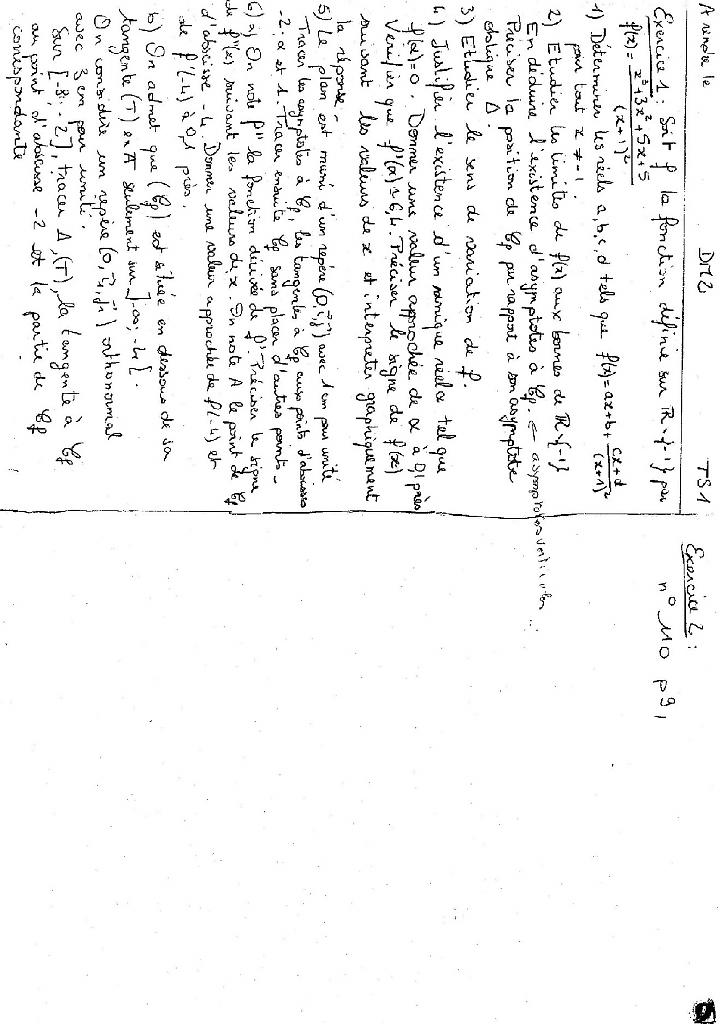 A rendre le DM2 TS1
Exercice 1 : Soit f la fonction définie sur ℝ \ {-1} par
f(x) = (x³+3x²+5x+5)/(x+1)²
1) Déterminer les réels a, b, c, d tels que f(x) = ax+b+ (cx+d)/(x+1)²
pour tout x ≠ -1
2) Etudier les limites de f(x) aux bornes de ℝ \ {-1}
En déduire l'existence d'asymptotes à 𝒞f. ← asymptotes verticales
Préciser la position de 𝒞f par rapport à son asymptote
oblique Δ.
3) Etudier le sens de variation de f
4) Justifier l'existence d'un unique réel α tel que
f(α) = 0. Donner une valeur approchée de α à 0,1 près
Vérifier que f'(α) ≈ 6,4. Préciser le signe de f(x)
suivant les valeurs de x et interpréter graphiquement
la réponse -
5) Le plan est muni d'un repère (O, i, j) avec 1 cm pour unité
Tracer les asymptotes à 𝒞f, les tangentes à 𝒞f aux points d'abscisses
-2, α et 1. Tracer ensuite 𝒞f sans placer d'autres points -
6) a) On note f'' la fonction dérivée de f'. Préciser le signe
de f''(x) suivant les valeurs de x. On note A le point de 𝒞f
d'abscisse -4. Donner une valeur approchée de f(-4) et
de f'(-4) à 0,1 près.
b) On admet que (𝒞f) est située en dessous de sa
tangente (T) en A seulement sur ]-∞, -4[.
On considère un repère (O, i, j) orthonormal
avec 3 cm pour unité.
Sur [-8, -2], tracer Δ, (T), la tangente à 𝒞f
au point d'abscisse -2 et la partie de 𝒞f
correspondante
Exercice 2 :
n° 110 p 91